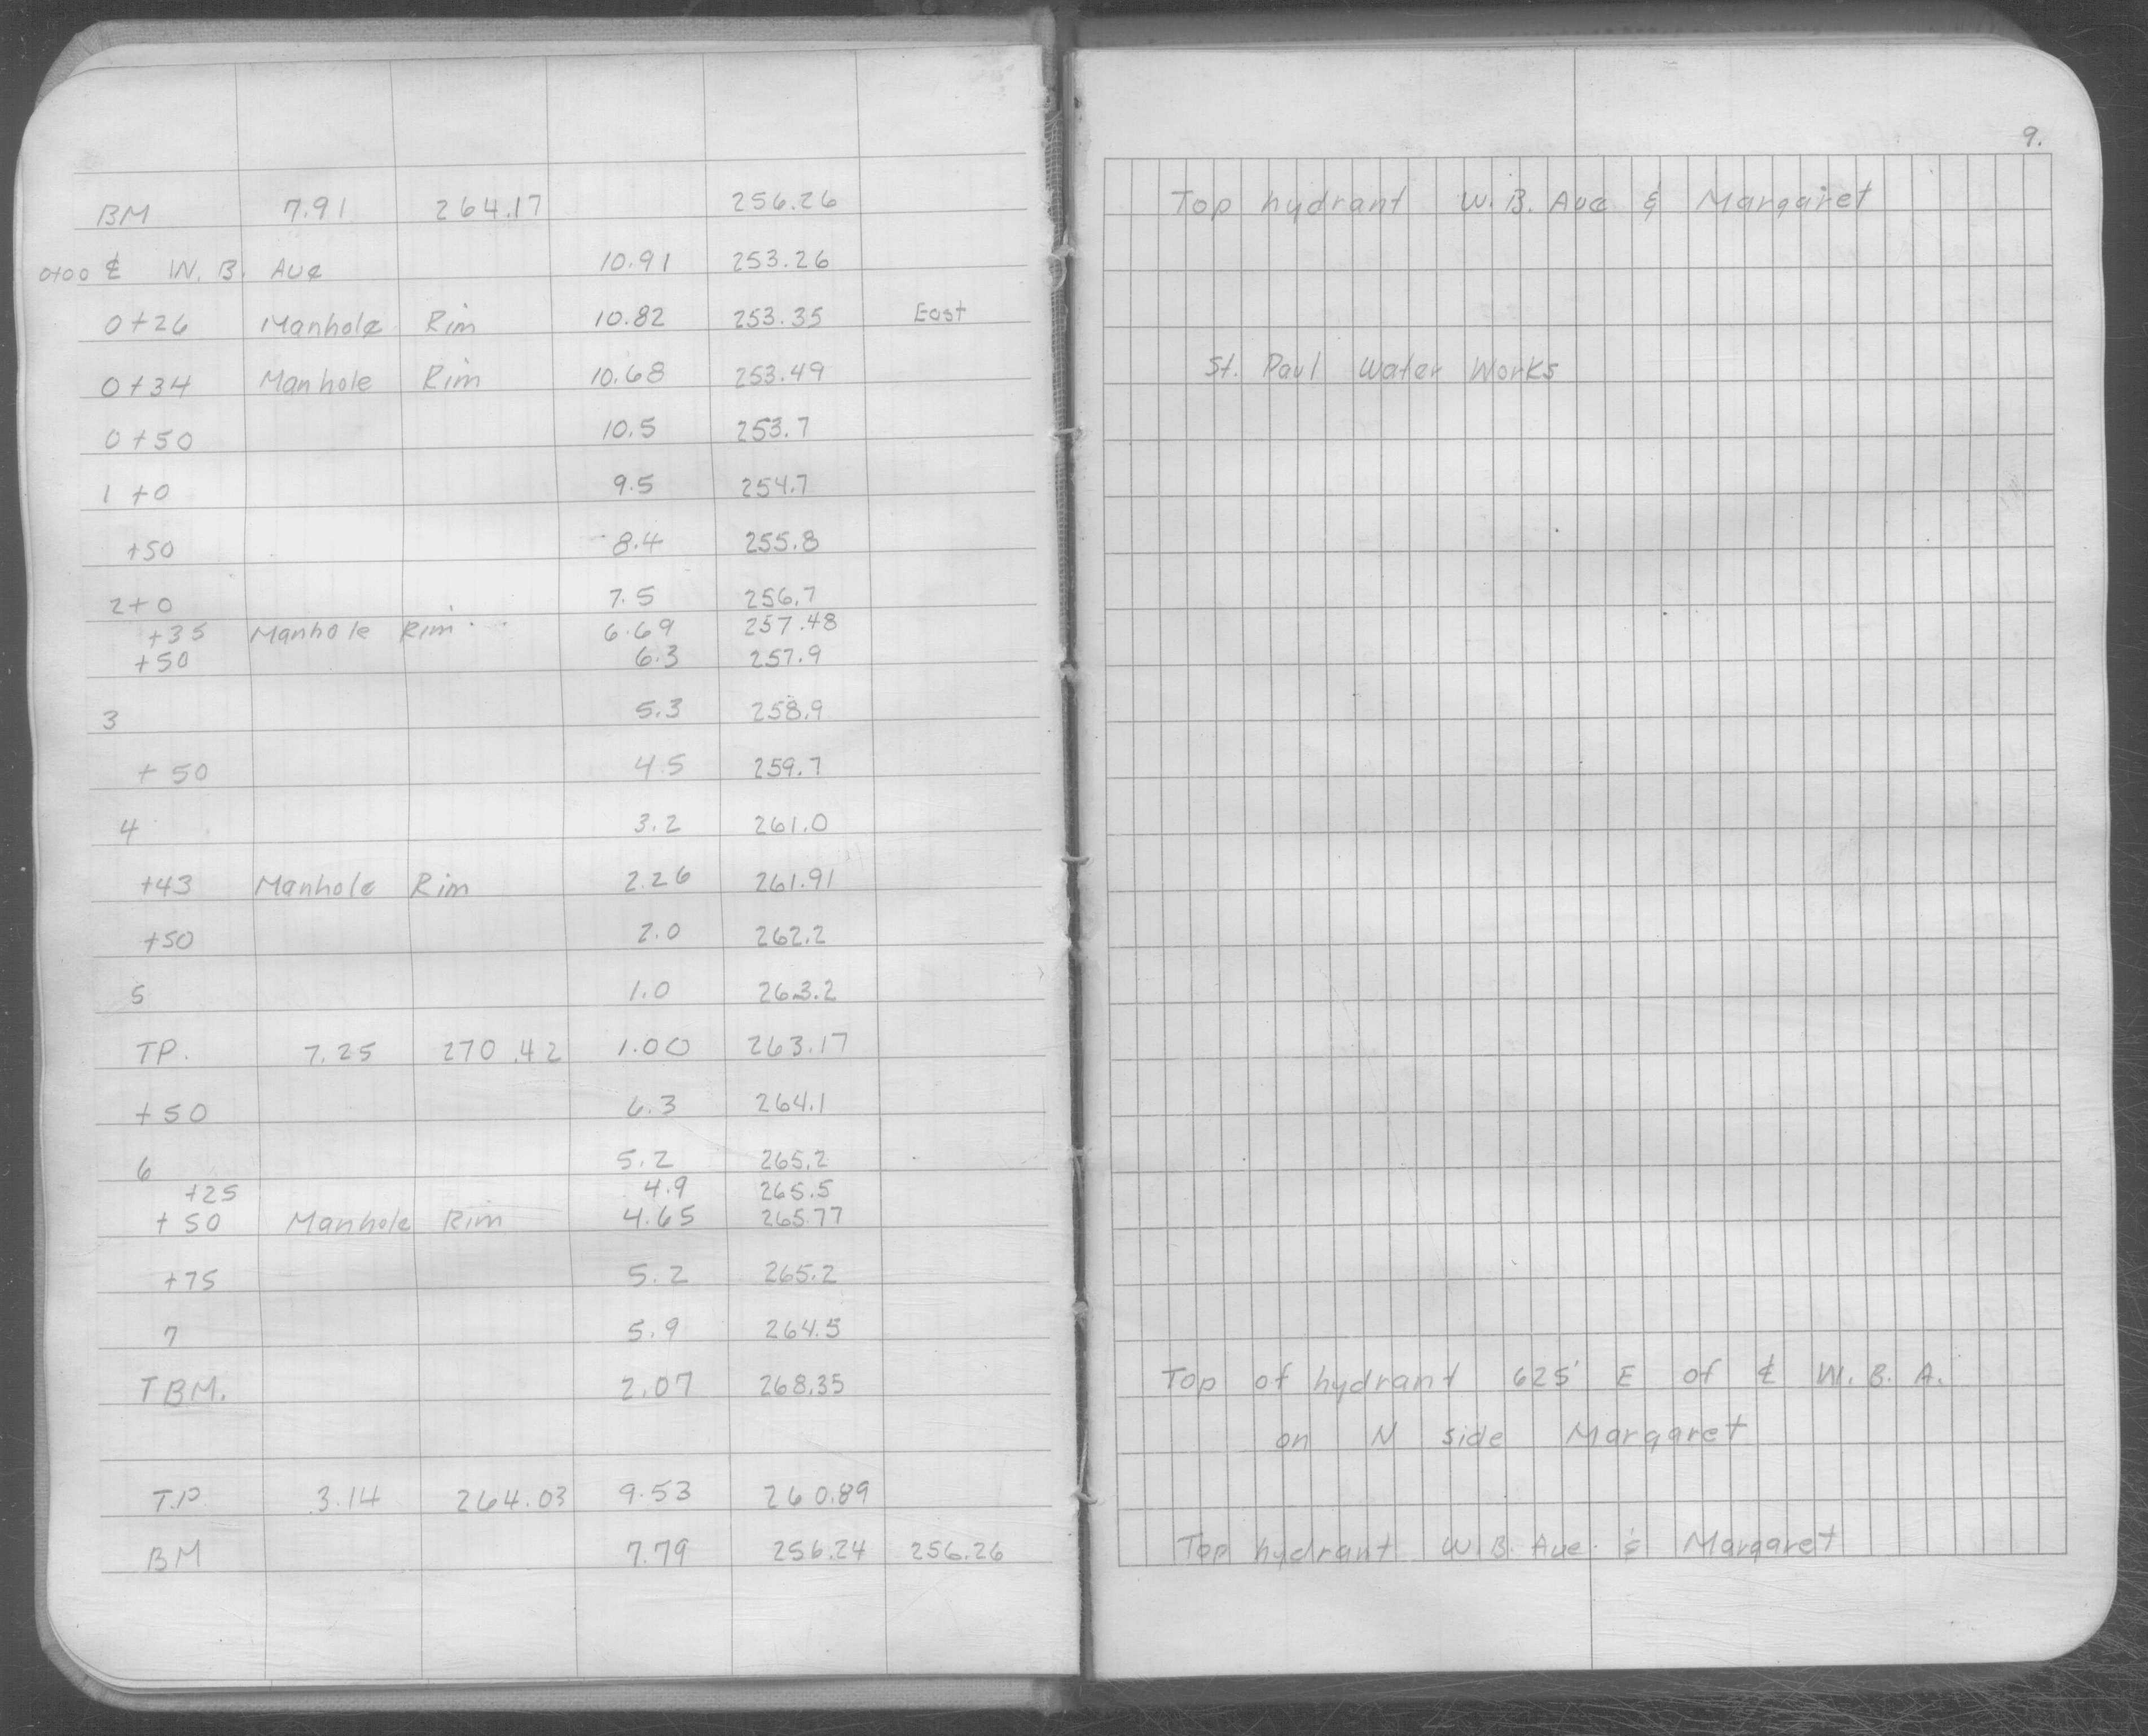 9.
BM 7.91 264.17 256.26 Top hydrant W.B. Ave & Margaret
0+00 ℄ W.B. Ave 10.91 253.26
0+26 Manhole Rim 10.82 253.35 East
0+34 Manhole Rim 10.68 253.49 St. Paul Water Works
0+50 10.5 253.7
1+0 9.5 254.7
+50 8.4 255.8
2+0 7.5 256.7
+35 Manhole Rim 6.69 257.48
+50 6.3 257.9
3 5.3 258.9
+50 4.5 259.7
4 3.2 261.0
+43 Manhole Rim 2.26 261.91
+50 2.0 262.2
5 1.0 263.2
TP. 7.25 270.42 1.00 263.17
+50 6.3 264.1
6 5.2 265.2
+25 4.9 265.5
+50 Manhole Rim 4.65 265.77
+75 5.2 265.2
7 5.9 264.5
TBM. 2.07 268.35 Top of hydrant 625' E of ℄ W.B.A.
on N side Margaret
T.P 3.14 264.03 9.53 260.89
BM 7.79 256.24 256.26 Top hydrant W.B. Ave. & Margaret